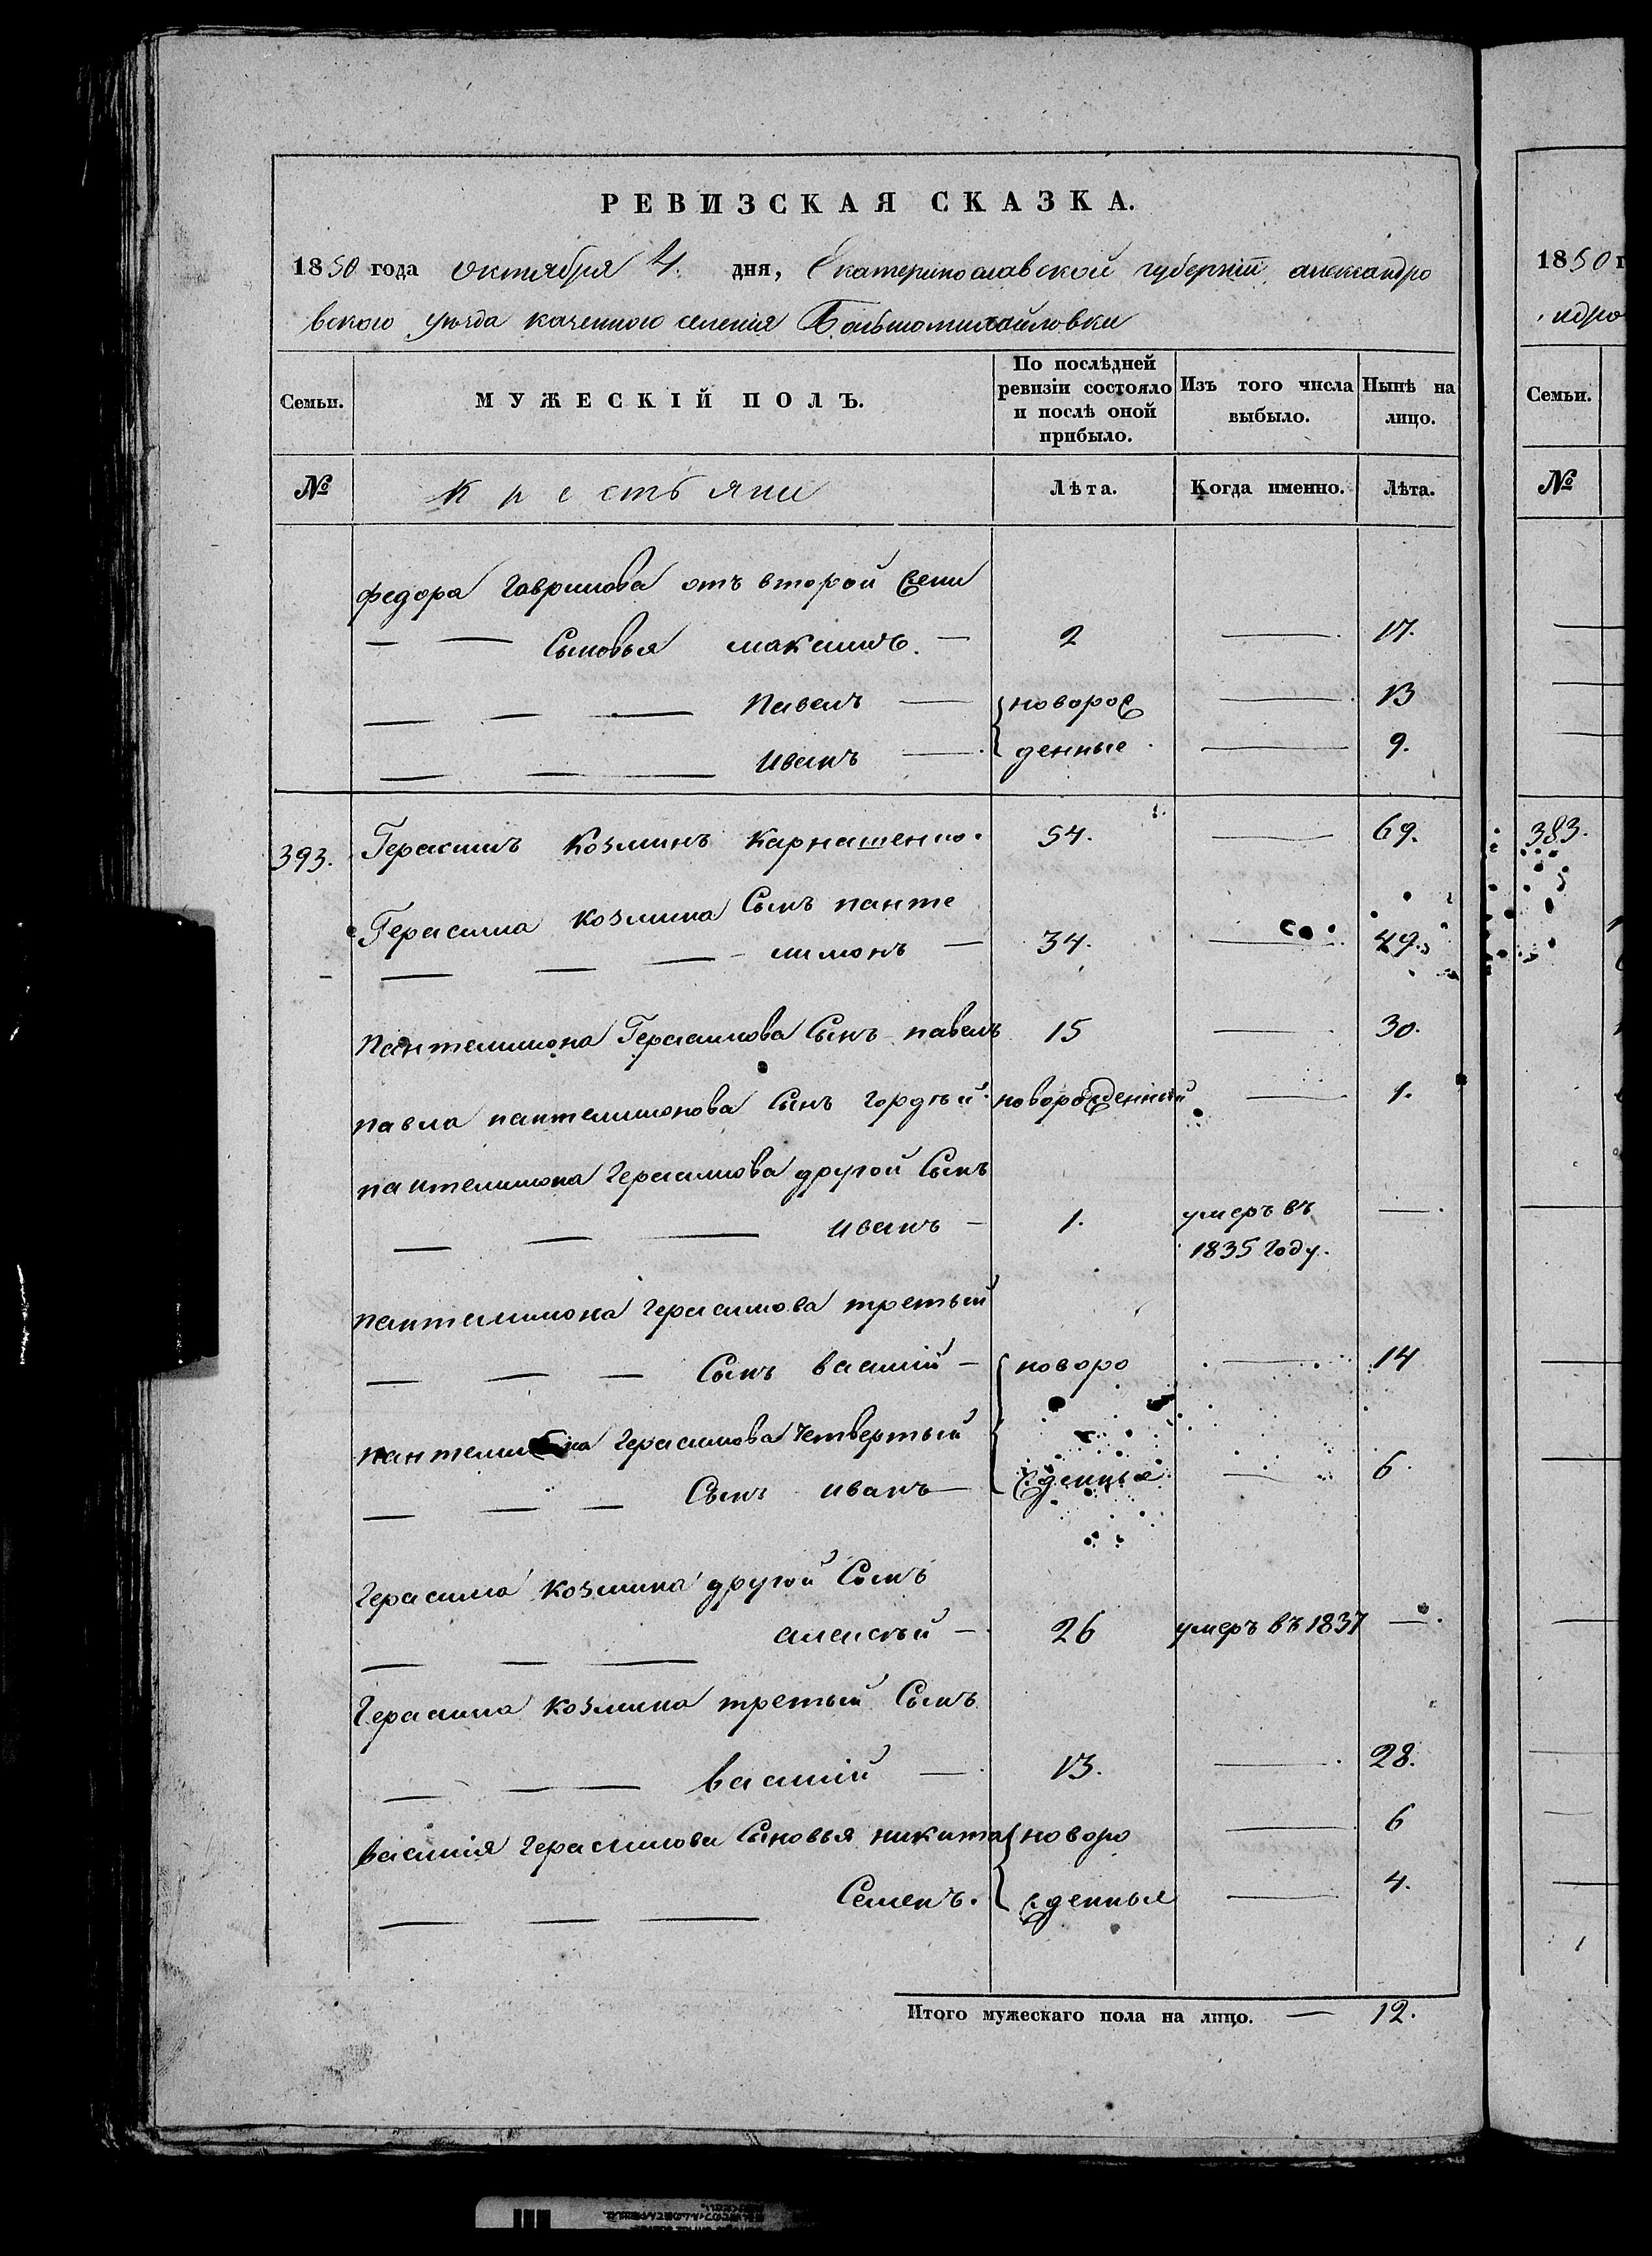 РЕВИЗСКАЯ СКАЗКА.
1850 года октября 4. дня, Екатеринославской губерніи, александро
вского уезда казенного селенія Большомихайловки
Семьи. МУЖЕСКІЙ ПОЛЪ. По послѣдней ревизіи состояло и послѣ оной прибыло. Изъ того числа выбыло. Нынѣ на лицо.
№ Крестьяни Лѣта. Когда именно. Лѣта.
федора Гаврилова отъ второй
Сыновья максимъ. — 2 — 17.
Павелъ — новорож — 13
Иванъ — денные — 9.
393. Герасимъ Козминъ Карнашенко. 54. — 69.
Герасима козмина Сынъ панте
лимонъ — 34. — 49.
Пантелимона Герасимова Сынъ павелъ 15 — 30.
павла пантелимонова Сынъ Гордѣй новорожденный — 1.
пантелимона Герасимова другой Сынъ
иванъ — 1. умеръ въ —
1835 Году.
пантелимона Герасимова третьій
Сынъ василій — новоро — 14
пантелимона Герасимова Четвертый
Сынъ иванъ — жденные — 6
Герасима козмина другой Сынъ
алексѣй — 26 умеръ въ 1837 —
Герасима козмина третьій Сынъ
василій — 13. — 28.
василія Герасимова Сыновья никита новоро — 6
Семенъ. жденные — 4.
Итого мужескаго пола на лицо. — 12.
1850 г
ндро
Семьи.
№
383.